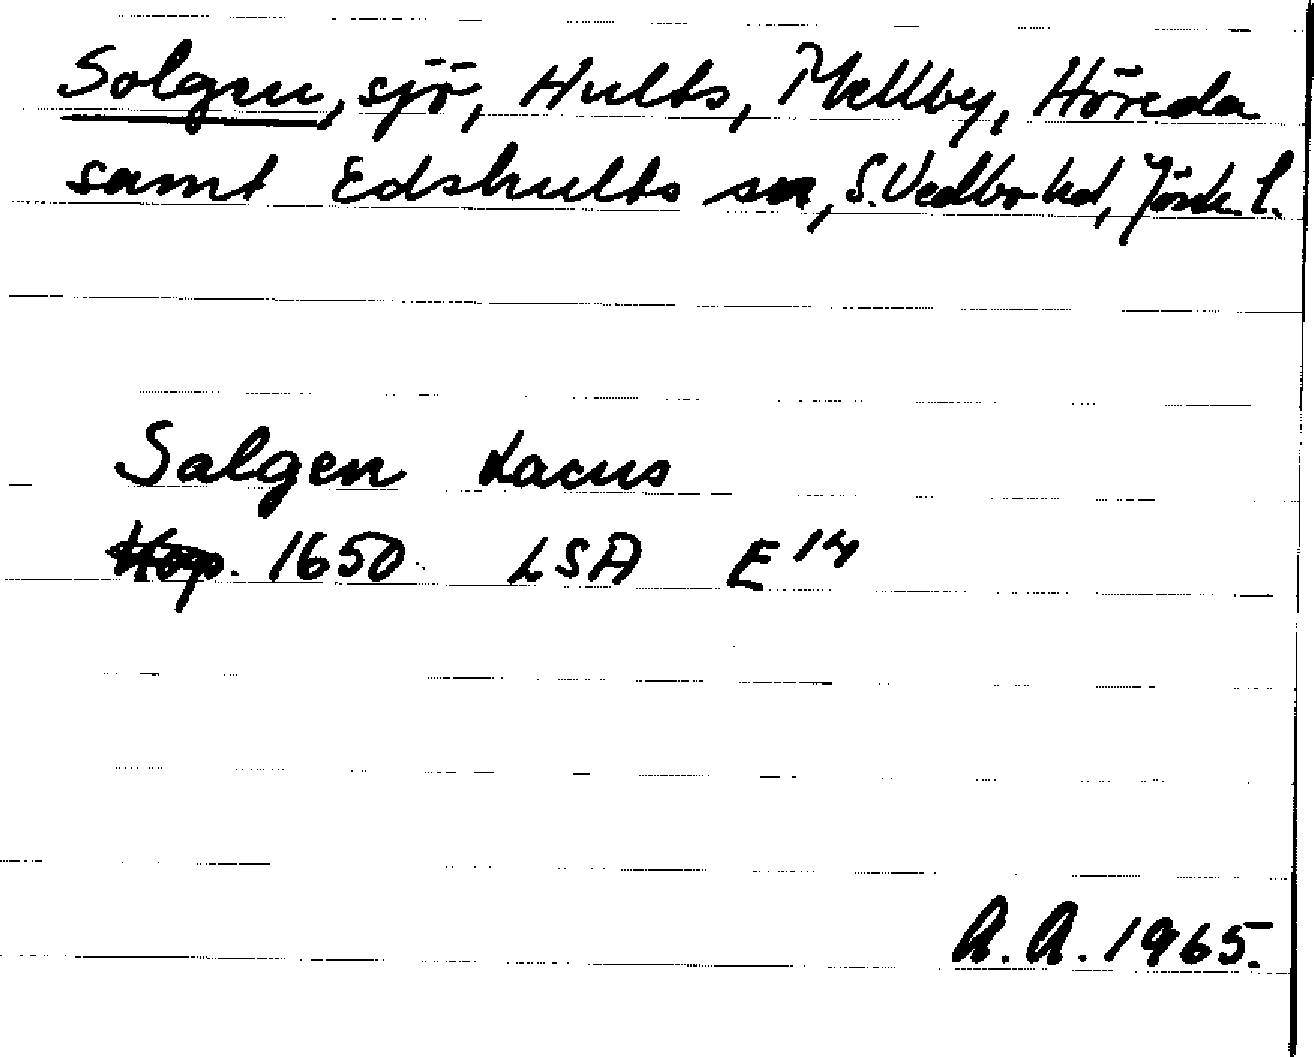 Solgen, sjö, Hults, Mellby, Höreda
samt Edshults sn, S. Vedbo hd, Jönk. l.
Salgen Lacus
Kop. 1650 LSA E 14
A.A. 1965.